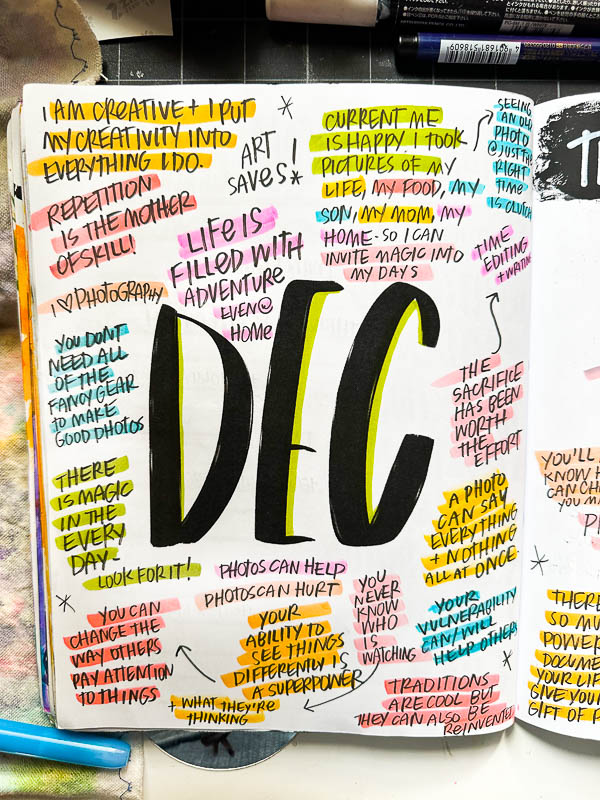 I AM CREATIVE + I PUT
MY CREATIVITY INTO
EVERYTHING I DO.
ART
SAVES!
CURRENT ME
IS HAPPY I TOOK
PICTURES OF MY
LIFE, MY FOOD, MY
SON, MY MOM, MY
HOME - SO I CAN
INVITE MAGIC INTO
MY DAYS
SEEING
AN OLD
PHOTO
@ JUST THE
RIGHT
TIME
IS CLUTCH
REPETITION
IS THE MOTHER
OF SKILL!
LIFE IS
FILLED WITH
ADVENTURE
EVEN @
HOME
TIME
EDITING
+ WRITING
I ♥ PHOTOGRAPHY
YOU DON'T
NEED ALL
OF THE
FANCY GEAR
TO MAKE
GOOD PHOTOS
DEC
THE
SACRIFICE
HAS BEEN
WORTH
THE
EFFORT
THERE
IS MAGIC
IN THE
EVERY
DAY-
LOOK FOR IT!
A PHOTO
CAN SAY
EVERYTHING
+ NOTHING
ALL AT ONCE.
PHOTOS CAN HELP
PHOTOS CAN HURT
YOU CAN
CHANGE THE
WAY OTHERS
PAY ATTENTION
TO THINGS
YOUR
ABILITY TO
SEE THINGS
DIFFERENTLY IS
A SUPERPOWER
+ WHAT THEY'RE
THINKING
YOU
NEVER
KNOW
WHO
IS
WATCHING
YOUR
VULNERABILITY
CAN/WILL
HELP OTHERS
TRADITIONS
ARE COOL BUT
THEY CAN ALSO BE
REINVENTED
YOU'LL
KNOW
CAN
YOU
THERE
SO MU
POWER
DOCUME
YOUR LIFE
GIVE YOUR
GIFT OF
4901681578609